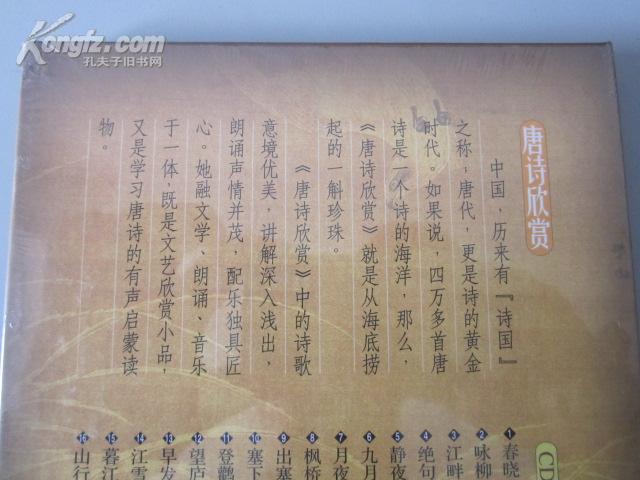 Kongfz.com
孔夫子旧书网
唐诗欣赏
中国，历来有『诗国』
之称；唐代，更是诗的黄金
时代。如果说，四万多首唐
诗是一个诗的海洋，那么，
《唐诗欣赏》就是从海底捞
起的一斛珍珠。
《唐诗欣赏》中的诗歌
意境优美，讲解深入浅出，
朗诵声情并茂，配乐独具匠
心。她融文学、朗诵、音乐
于一体，既是文艺欣赏小品，
又是学习唐诗的有声启蒙读
物。
CD
1 春晓
2 咏柳
3 江畔
4 绝句
5 静夜
6 九月
7 月夜
8 枫桥
9 出塞
10 塞下
11 登鹳
12 望庐
13 早发
14 江雪
15 暮江
16 山行